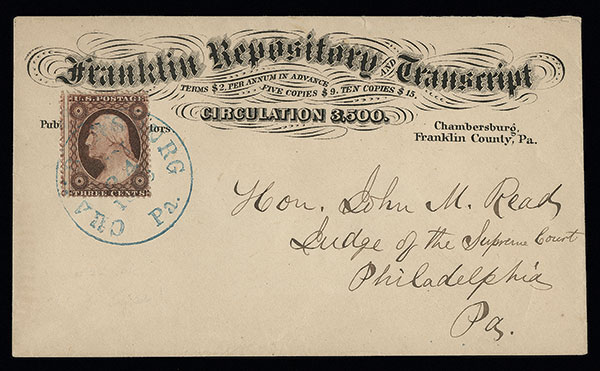 Franklin Repository AND Transcript
TERMS $2. PER ANNUM IN ADVANCE
FIVE COPIES $9. TEN COPIES $15.
CIRCULATION 3,500.
U.S. POSTAGE
THREE CENTS
Pub
tors
Chambersburg,
Franklin County, Pa.
CHA
BURG
Pa.
Hon. John M. Read
Judge of the Supreme Court
Philadelphia
Pa.